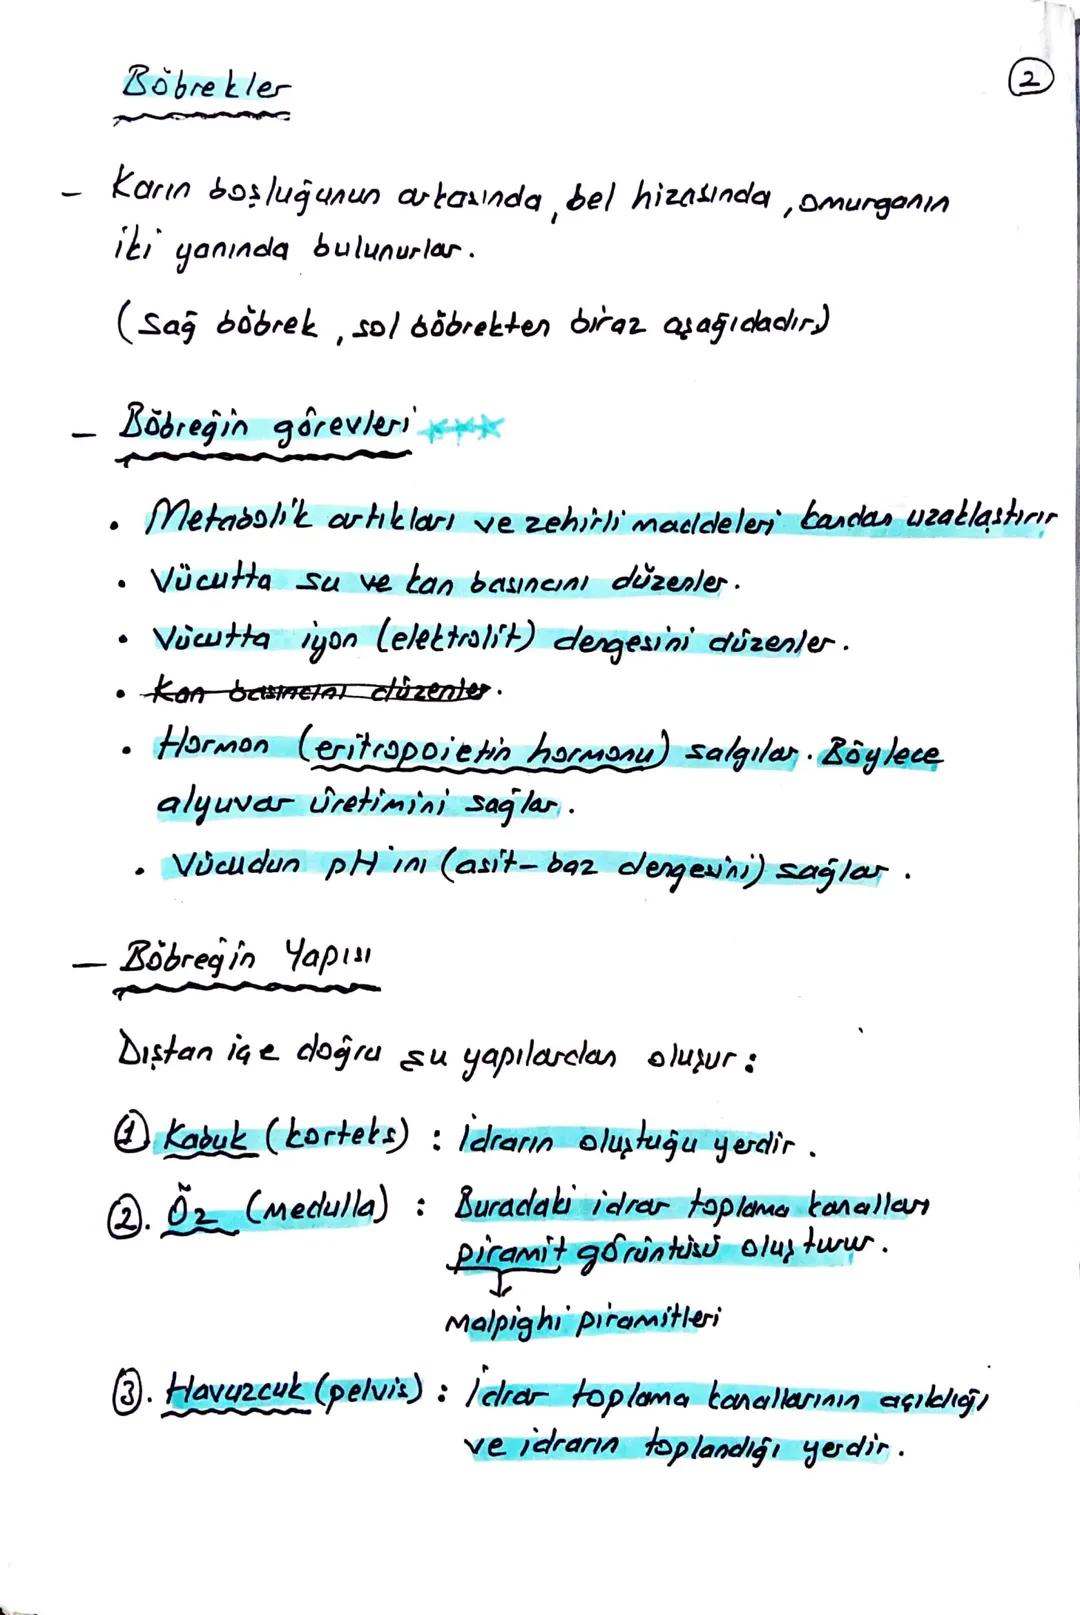 Böbrekler
2
- Karın boşluğunun arkasında, bel hizasında, omurganın
iki yanında bulunurlar.
(Sağ böbrek, sol böbrekten biraz aşağıdadır.)
- Böbreğin görevleri ***
• Metabolik artıkları ve zehirli maddeleri kandan uzaklaştırır
• Vücutta su ve kan basıncını düzenler.
• Vücutta iyon (elektrolit) dengesini düzenler.
• Kan basıncını düzenler.
• Hormon (eritropoietin hormonu) salgılar. Böylece
alyuvar üretimini sağlar.
• Vücudun pH'ını (asit-baz dengesini) sağlar.
- Böbreğin Yapısı
Dıştan içe doğru şu yapılardan oluşur:
1. Kabuk (korteks) : İdrarın oluştuğu yerdir.
2. Öz (medulla) : Buradaki idrar toplama kanalları
piramit görüntüsü oluşturur.
↓
Malpighi piramitleri
3. Havuzcuk (pelvis) : İdrar toplama kanallarının açıldığı
ve idrarın toplandığı yerdir.